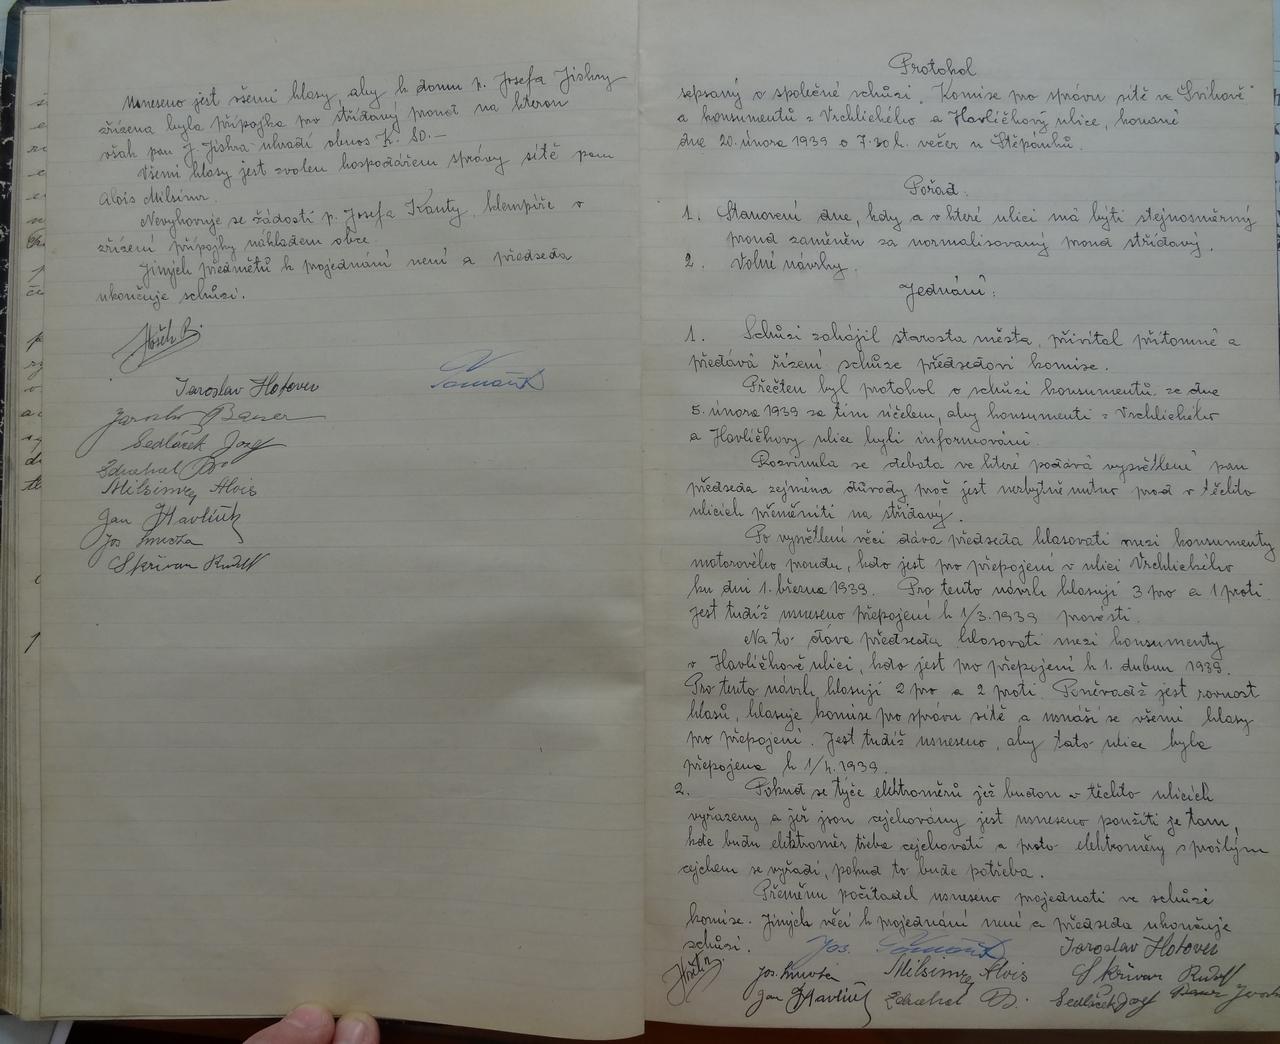 Usneseno jest všemi hlasy aby k domu p. Josefa Jiskry
zřízena byla přípojka pro střídavý proud na kterou
však pan J. Jiskra uhradí obnos K. 80.-
Všemi hlasy jest zvolen hospodářem správy sítě pan
Alois Milsimr.
Nevyhovuje se žádosti p. Josefa Kauty, klempíře o
zřízení přípojky nákladem obce.
Jiných předmětů k projednání není a předseda
ukončuje schůzi.
Jaroslav Hotovec
Jaroslav Bauer
Sedláček Josef
Zdrahal
Milsimr Alois
Jan Havlíček
Jos
Skřivan Rudolf
Protokol
sepsaný o společné schůzi Komise pro správu sítě ve
a konsumentů z Vrchlického a Havlíčkovy ulice, konané
dne 20. února 1939 o 7.30 h. večer u Štěpánků.
Pořad.
1. Stanovení dne, kdy a v které ulici má býti stejnosměrný
proud zaměněn za normalisovaný proud střídavý.
2. Volné návrhy.
Jednání:
1. Schůzi zahájil starosta města, přivítal přítomné a
předává řízení schůze předsedovi komise.
Přečten byl protokol o schůzi konsumentů ze dne
5. února 1939 za tím účelem, aby konsumenti z Vrchlického
a Havlíčkovy ulice byli informováni.
Rozvinula se debata ve které podává vysvětlení pan
předseda zejména důvody proč jest nezbytně nutno proud v těchto
ulicích přeměniti na střídavý.
Po vysvětlení věci dává předseda hlasovati mezi konsumenty
motorového proudu, kdo jest pro přepojení v ulici Vrchlického
ku dni 1. března 1939. Pro tento návrh hlasují 3 pro a 1 proti.
Jest tudíž usneseno přepojení k 1/3.1939 provésti.
Na to dává předseda hlasovati mezi konsumenty
v Havlíčkově ulici, kdo jest pro přepojení k 1. dubnu 1939.
Pro tento návrh hlasují 2 pro a 2 proti. Poněvadž jest rovnost
hlasů, hlasuje komise pro správu sítě a usnáší se všemi hlasy
pro přepojení. Jest tudíž usneseno, aby tato ulice byla
přepojena k 1/4.1939.
2. Pokud se týče elektroměrů jež budou v těchto ulicích
vyřazeny a jež jsou cejchovány jest usneseno použíti je tam,
kde budu elektroměr třeba cejchovati a proto elektroměry s prošlým
cejchem se vyřadí, pokud to bude potřeba.
Přeměnu počítadel usneseno projednati ve schůzi
komise. Jiných věcí k projednání není a předseda ukončuje
schůzi.
Jos.
Jaroslav Hotovec
Jos.
Milsimr Alois
Skřivan Rudolf
Jan Havlíček
Zdrahal
Sedláček Josef
Bauer